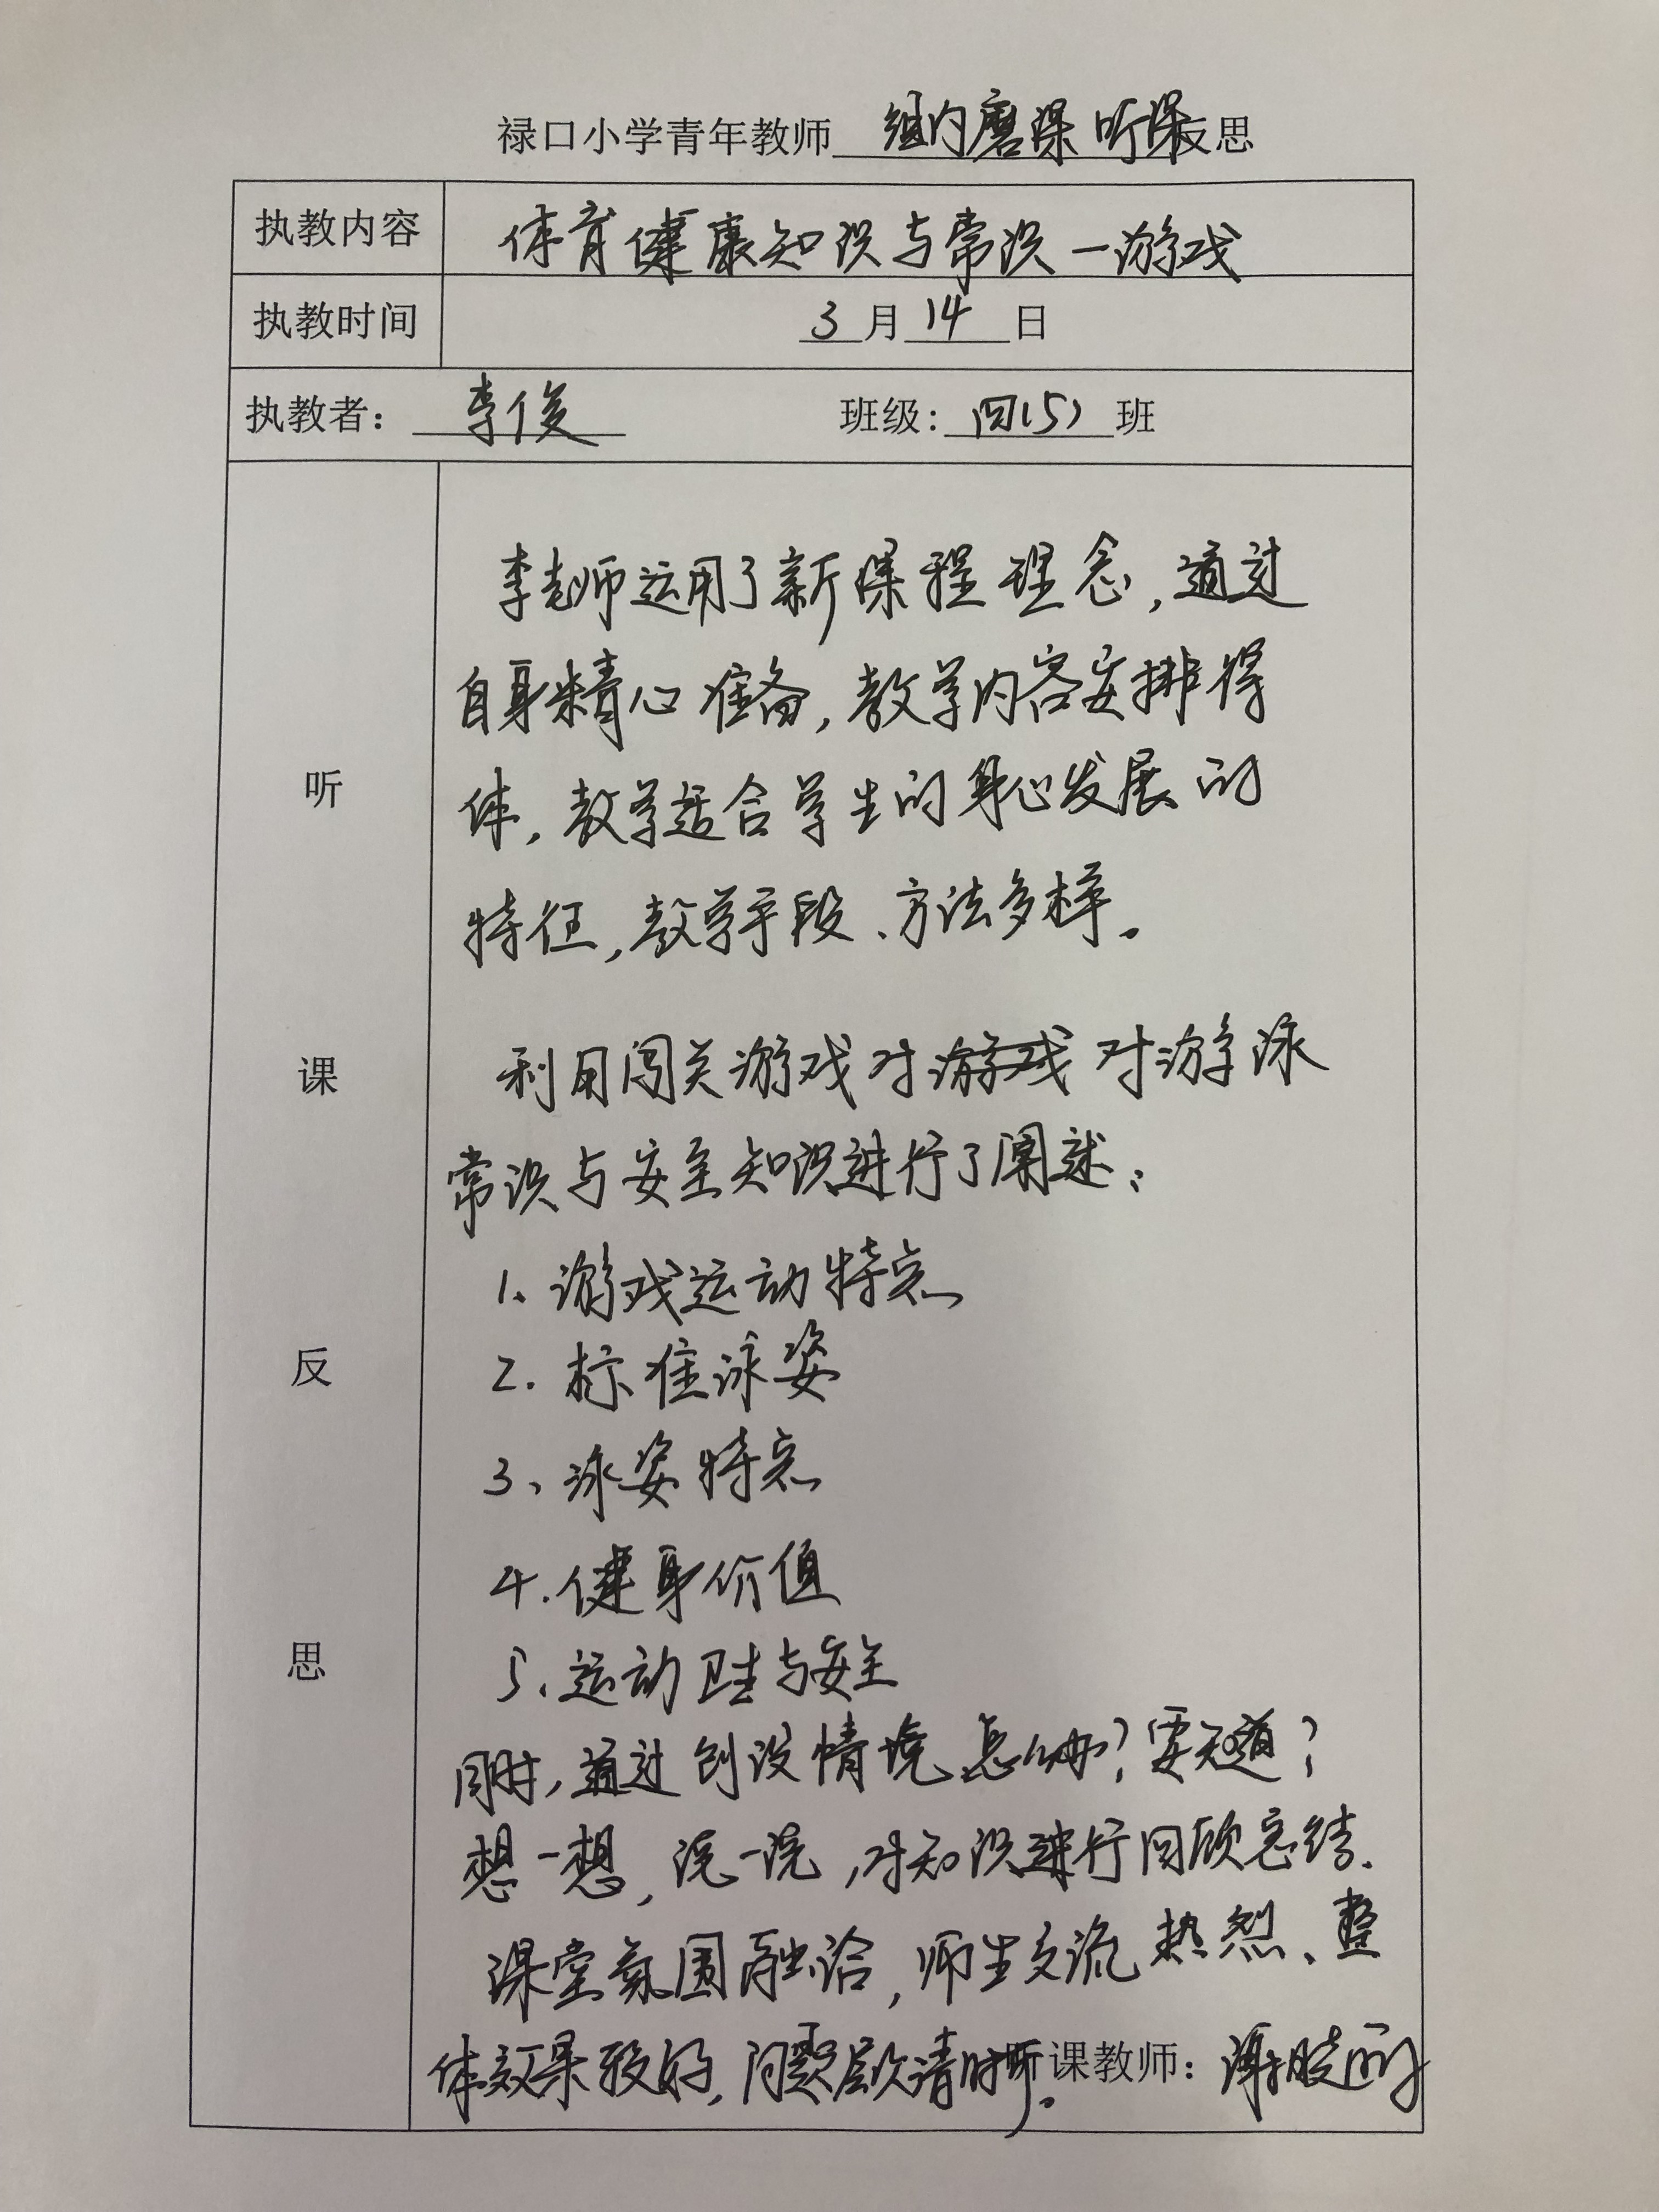 禄口小学青年教师 组内磨课听课反思
执教内容 体育健康知识与常识一游戏
执教时间 3月14日
执教者：李俊 班级：四(5)班
听课反思
李老师运用了新课程理念，通过
自身精心准备，教学内容安排得
体，教学适合学生的身心发展的
特征，教学手段、方法多样。
利用闯关游戏对游戏对游泳
常识与安全知识进行了阐述：
1、游戏运动特点
2.标准泳姿
3、泳姿特点
4.健身价值
5、运动卫生与安全
同时，通过创设情境怎么办？要知道？
想一想，说一说，对知识进行回顾总结.
课堂氛围融洽，师生交流热烈、整
体效果较好，问题层次清晰。
听课教师：谢